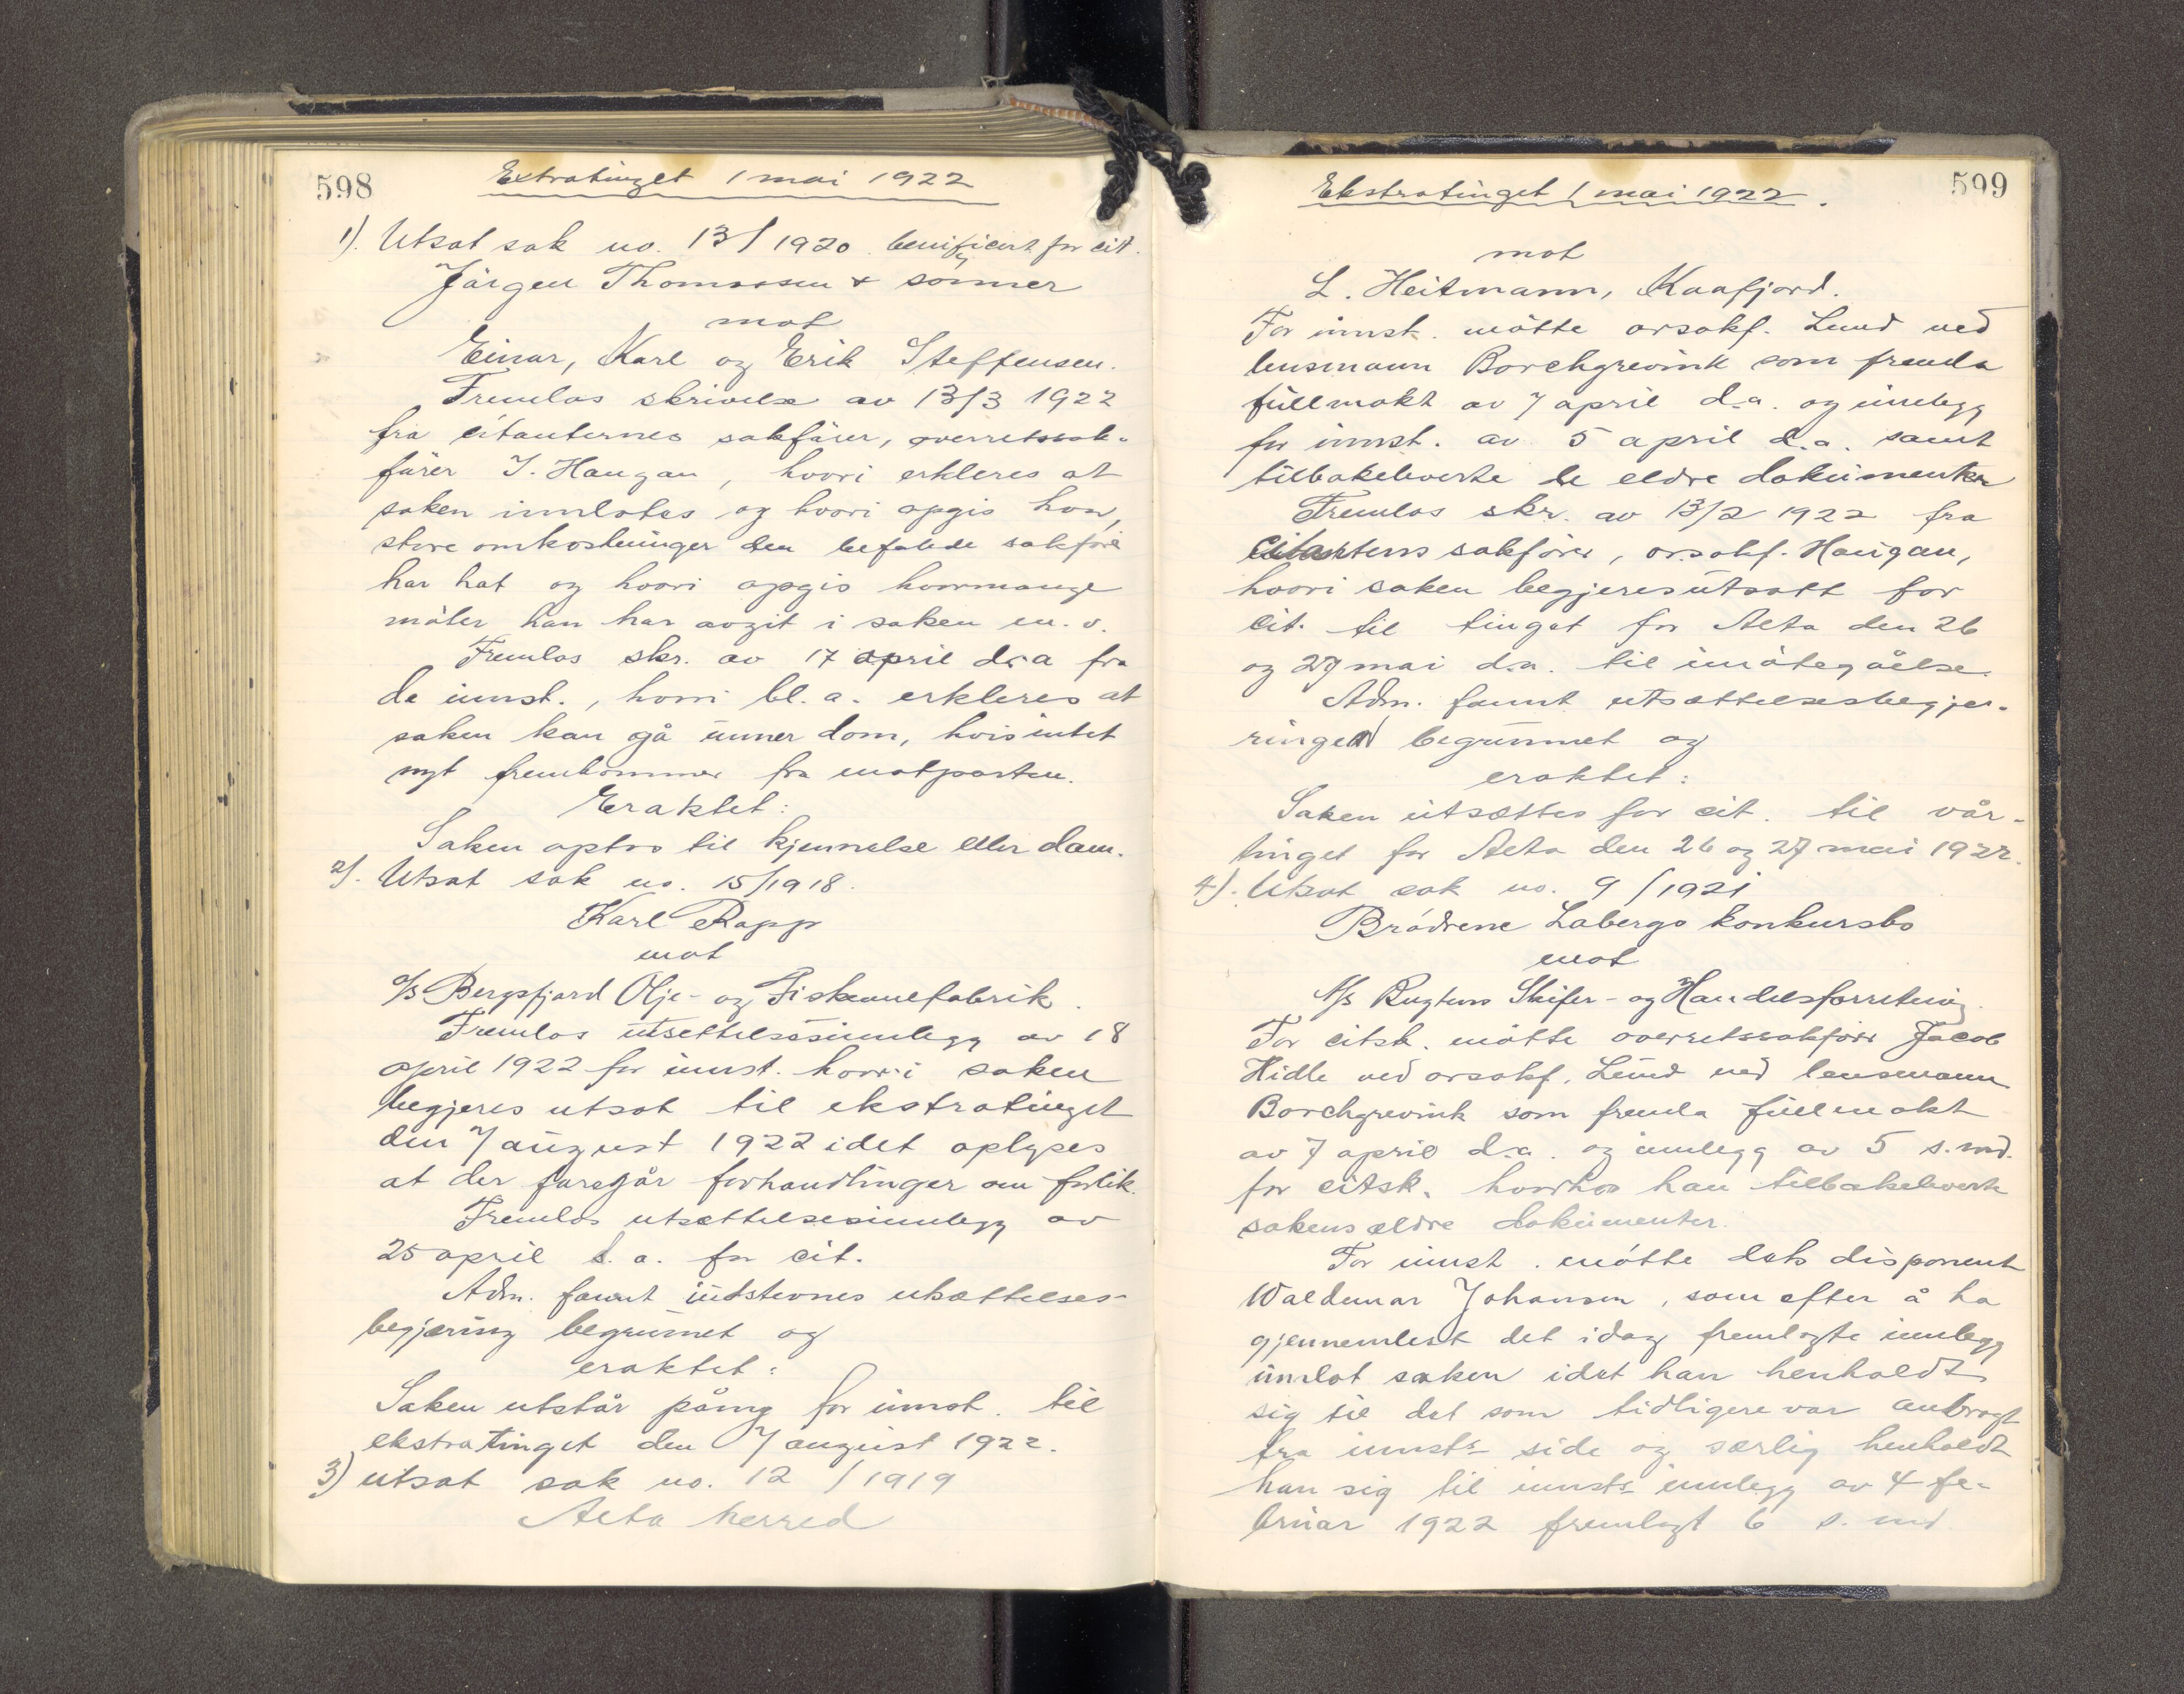 598
Extratinget 1 mai 1922
1). Utsat sak no. 13/1920 benificert for cit.
Jörgen Thomassen & sönner
mot
Einar, Karl og Erik Steffensen.
Fremlas skrivelse av 13/3 1922
fra citanternes sakförer, overretssak-
förer I. Haugan, hvori erkleres at
saken innlates og hvori opgis hvor
store omkostninger den befalede sakförer
har hat og hvori opgis hvormange
möter han har avgit i saken m. v.
Fremlas skr. av 17 april d.a fra
de innst., hvori bl. a. erkleres at
saken kan gå unner dom, hvis intet
nyt fremkommer fra motparten.
Eraktet:
Saken optas til kjennelse eller dom.
2). Utsat sak no. 15/1918.
Karl Rapp
mot
A/S Bergsfjord Olje- og Fiskemelfabrik.
Fremlas utsettelsesinnlegg av 18
april 1922 for innst. hvori saken
begjeres utsat til ekstratinget
den 7 august 1922 idet oplyses
at der foregår forhandlinger om forlik.
Fremlas utsættelsesinnlegg av
25 april d. a. for cit.
Adm. fannt indstevnes utsættelses-
begjæring begrunnet og
eraktet:
Saken utstår påny for innst. til
ekstratinget den 7 august 1922.
3) utsat sak no. 12/1919
Alta herred
599
Ekstratinget 1 mai 1922.
mot
L. Heitmann, Kaafjord.
For innst. mötte orsakf. Lund ved
lensmann Borchgrevink som fremla
fullmakt av 7 april d.a. og innlegg
for innst. av 5 april d.a. samt
tilbakeleverte de eldre dokumenter
Fremlas skr. av 13/2 1922 fra
citantens sakförer, orsakf. Haugan,
hvori saken begjeres utsatt for
cit. til tinget for Alta den 26
og 27 mai d.a. til imötegåelse.
Adm. fannt utsættelsesbegjæ-
ringen begrunnet og
eraktet:
Saken utsættes for cit. til vår-
tinget for Alta den 26 og 27 mai 1922.
4). Utsat sak no. 9/1921
Brödrene Labergs konkursbo
mot
A/S Rugtens Skifer- og Handelsforretning.
For citsk. mötte overretssakförer Jacob
Hidle ved orsakf. Lund ved lensmann
Borchgrevink som fremla fullmakt
av 7 april d.a. og innlegg av 5 s. md.
for citsk. hvorhos han tilbakeleverte
sakens ældre dokumenter.
For innst. mötte dets disponent
Waldemar Johansen, som efter å ha
gjennemlest det idag fremlagte innlegg
innlot saken idet han henholdt
sig til det som tidligere var anbragt
fra innsts side og særlig henholdt
han sig til innsts innlegg av 4 fe-
bruar 1922 fremlagt 6 s. md